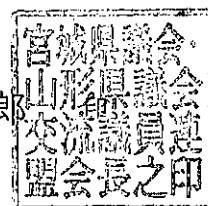 宮城県議会・
山形県議会
交流議員連
盟会長之印
郎